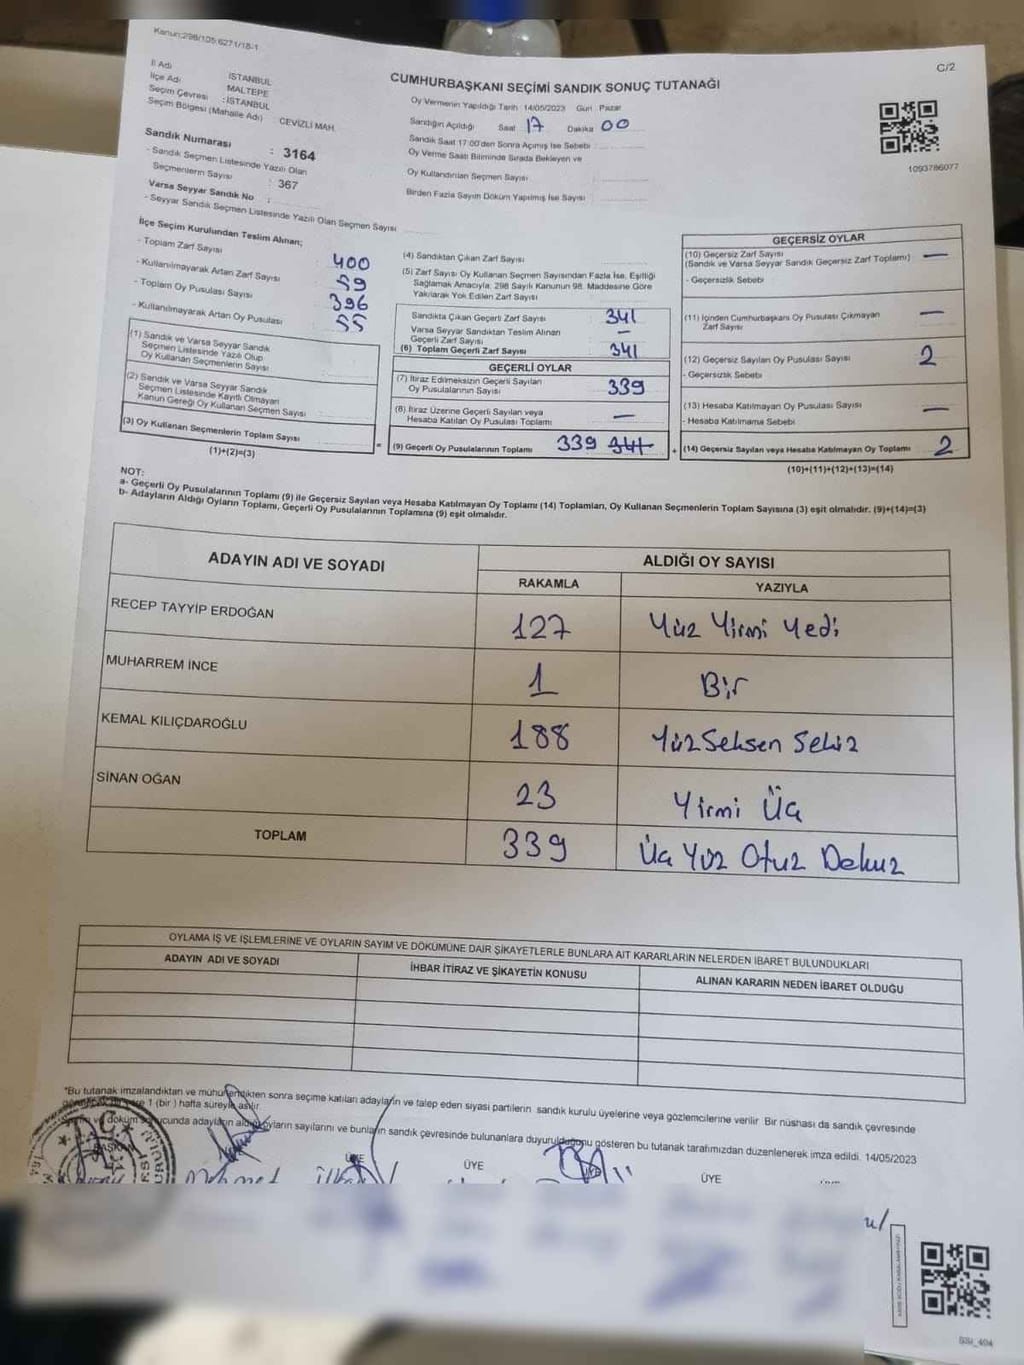 Kanun:298/105;6271/18-1
C/2
CUMHURBAŞKANI SEÇİMİ SANDIK SONUÇ TUTANAĞI
İl Adı : İSTANBUL
İlçe Adı MALTEPE
Seçim Çevresi : İSTANBUL
Seçim Bölgesi (Mahalle Adı) : CEVİZLİ MAH.
Sandık Numarası : 3164
- Sandık Seçmen Listesinde Yazılı Olan
Seçmenlerin Sayısı : 367
Varsa Seyyar Sandık No :
- Seyyar Sandık Seçmen Listesinde Yazılı Olan Seçmen Sayısı
Oy Vermenin Yapıldığı Tarih : 14/05/2023 Gün : Pazar
Sandığın Açıldığı Saat 17 Dakika 00
Sandık Saat 17:00'den Sonra Açılmış İse Sebebi :
Oy Verme Saati Bitiminde Sırada Bekleyen ve
Oy Kullandırılan Seçmen Sayısı :
Birden Fazla Sayım Döküm Yapılmış İse Sayısı :
1093786077
İlçe Seçim Kurulundan Teslim Alınan;
- Toplam Zarf Sayısı 400
- Kullanılmayarak Artan Zarf Sayısı 59
- Toplam Oy Pusulası Sayısı 396
- Kullanılmayarak Artan Oy Pusulası 55
(1) Sandık ve Varsa Seyyar Sandık
Seçmen Listesinde Yazılı Olup
Oy Kullanan Seçmenlerin Sayısı
(2) Sandık ve Varsa Seyyar Sandık
Seçmen Listesinde Kayıtlı Olmayan
Kanun Gereği Oy Kullanan Seçmen Sayısı
(3) Oy Kullanan Seçmenlerin Toplam Sayısı
(1)+(2)=(3)
=
(4) Sandıktan Çıkan Zarf Sayısı
(5) Zarf Sayısı Oy Kullanan Seçmen Sayısından Fazla İse, Eşitliği
Sağlamak Amacıyla, 298 Sayılı Kanunun 98. Maddesine Göre
Yakılarak Yok Edilen Zarf Sayısı
Sandıkta Çıkan Geçerli Zarf Sayısı 341
Varsa Seyyar Sandıktan Teslim Alınan
Geçerli Zarf Sayısı —
(6) Toplam Geçerli Zarf Sayısı 341
GEÇERLİ OYLAR
(7) İtiraz Edilmeksizin Geçerli Sayılan
Oy Pusulalarının Sayısı 339
(8) İtiraz Üzerine Geçerli Sayılan veya
Hesaba Katılan Oy Pusulası Toplamı —
(9) Geçerli Oy Pusulalarının Toplamı 339 341
+
GEÇERSİZ OYLAR
(10) Geçersiz Zarf Sayısı —
(Sandık ve Varsa Seyyar Sandık Geçersiz Zarf Toplamı)
- Geçersizlik Sebebi
(11) İçinden Cumhurbaşkanı Oy Pusulası Çıkmayan
Zarf Sayısı —
(12) Geçersiz Sayılan Oy Pusulası Sayısı 2
- Geçersizlik Sebebi
(13) Hesaba Katılmayan Oy Pusulası Sayısı —
- Hesaba Katılmama Sebebi
(14) Geçersiz Sayılan veya Hesaba Katılmayan Oy Toplamı 2
(10)+(11)+(12)+(13)=(14)
NOT:
a- Geçerli Oy Pusulalarının Toplamı (9) ile Geçersiz Sayılan veya Hesaba Katılmayan Oy Toplamı (14) Toplamları, Oy Kullanan Seçmenlerin Toplam Sayısına (3) eşit olmalıdır. (9)+(14)=(3)
b- Adayların Aldığı Oyların Toplamı, Geçerli Oy Pusulalarının Toplamına (9) eşit olmalıdır.
ADAYIN ADI VE SOYADI ALDIĞI OY SAYISI
RAKAMLA YAZIYLA
RECEP TAYYİP ERDOĞAN 127 Yüz Yirmi Yedi
MUHARREM İNCE 1 Bir
KEMAL KILIÇDAROĞLU 188 Yüz Seksen Sekiz
SİNAN OĞAN 23 Yirmi Üç
TOPLAM 339 Üç Yüz Otuz Dokuz
OYLAMA İŞ VE İŞLEMLERİNE VE OYLARIN SAYIM VE DÖKÜMÜNE DAİR ŞİKAYETLERLE BUNLARA AİT KARARLARIN NELERDEN İBARET BULUNDUKLARI
ADAYIN ADI VE SOYADI İHBAR İTİRAZ VE ŞİKAYETİN KONUSU ALINAN KARARIN NEDEN İBARET OLDUĞU
"Bu tutanak imzalandıktan ve mühürlendikten sonra seçime katılan adayların ve talep eden siyasi partilerin sandık kurulu üyelerine veya gözlemcilerine verilir Bir nüshası da sandık çevresinde
1 (bir) hafta süreyle asılır.
ve döküm sonucunda adayların aldığı oyların sayılarını ve bunların sandık çevresinde bulunanlara duyurulduğunu gösteren bu tutanak tarafımızdan düzenlenerek imza edildi. 14/05/2023
BAŞKAN ÜYE ÜYE ÜYE ÜYE
Mehmet
SSI_404